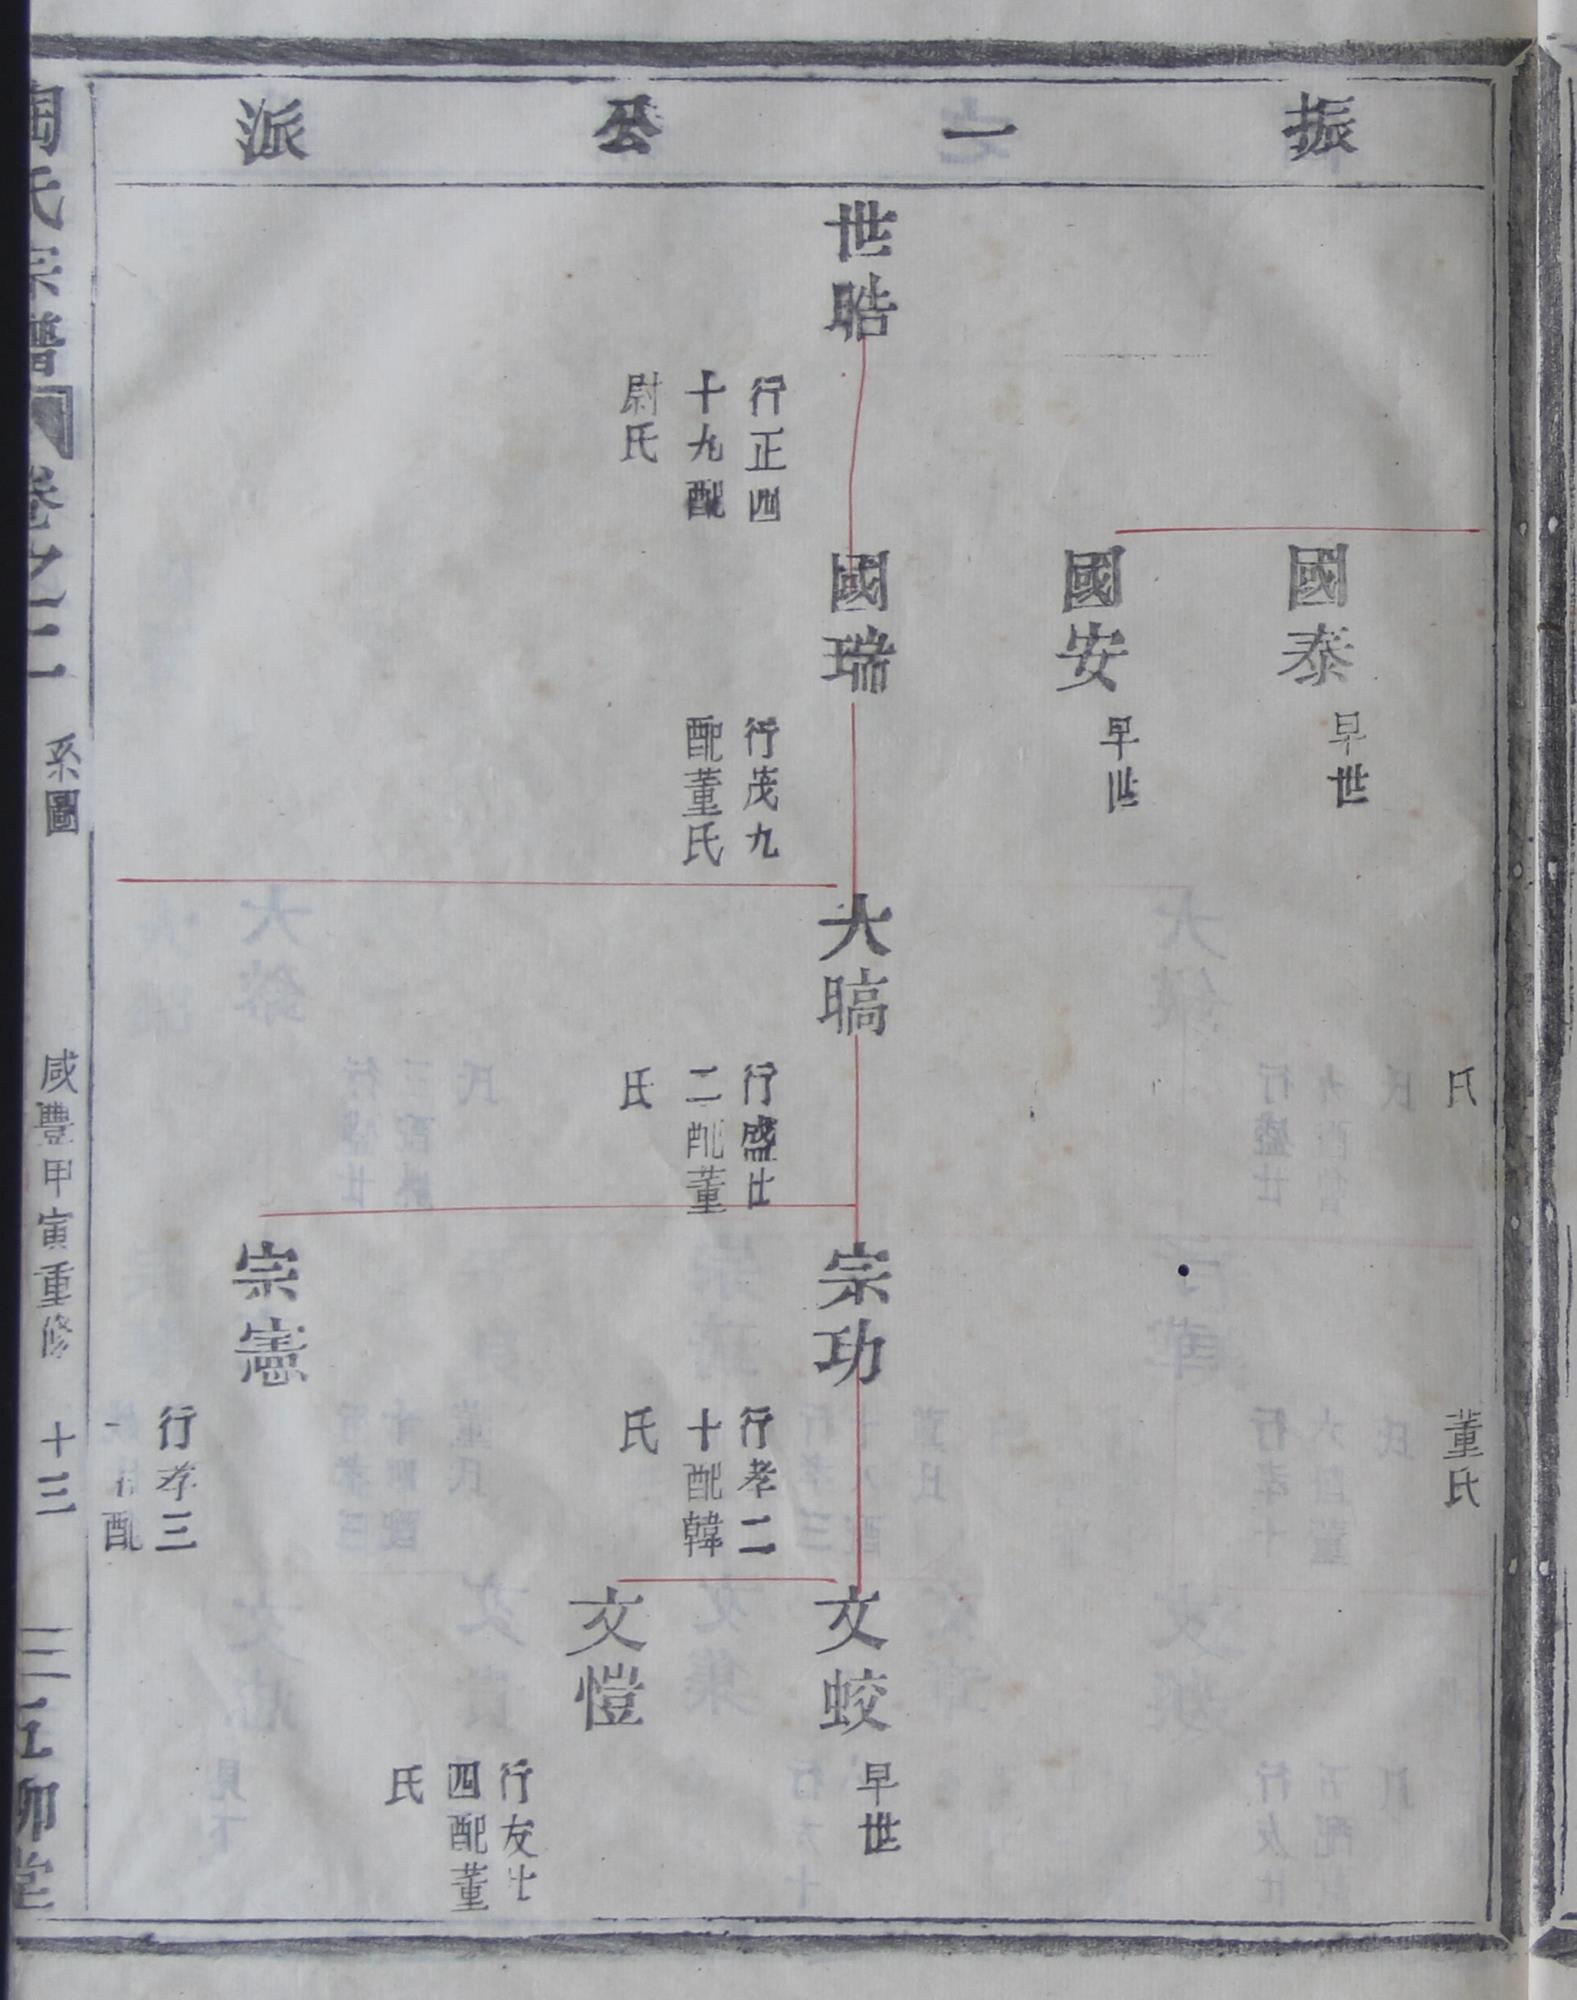 振一公派
氏
董氏
國泰
早世
國安
早世
世晧
行正四
十九配
尉氏
國瑞
行茂九
配董氏
大暠
行盛廿
二配董
氏
宗功
行孝二
十配韓
氏
文蛟
早世
文愷
行友廿
四配董
氏
宗憲
行孝三
配
陶氏宗譜
卷之二
系圖
咸豐甲寅重修
十三
五柳堂